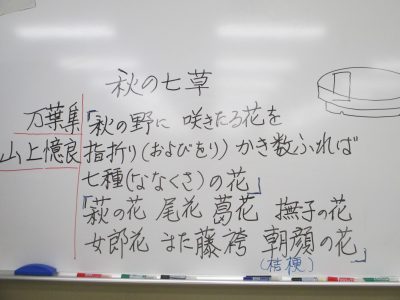 秋の七草
万葉集
山上憶良
「秋の野に 咲きたる花を
指折り(およびをり)かき数ふれば
七種(ななくさ)の花」
「萩の花 尾花 葛花 撫子の花
女郎花 また藤袴 朝顔の花」
(桔梗)